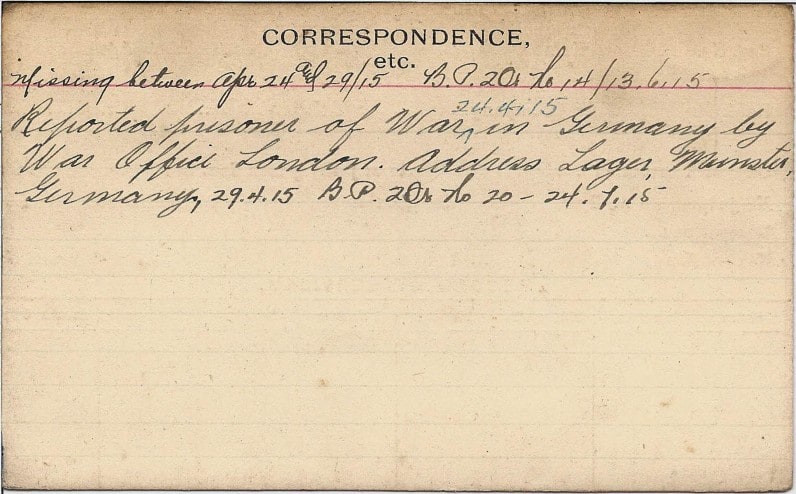 CORRESPONDENCE,
etc.
Missing between Apr 24 and 29/15 B.P. 2Os No 14/13.6.15
24.4.15
Reported prisoner of War ^ in Germany by
War Office London. Address Lager, Munster,
Germany, 29.4.15 B.P. 2Os No 20 - 24.7.15